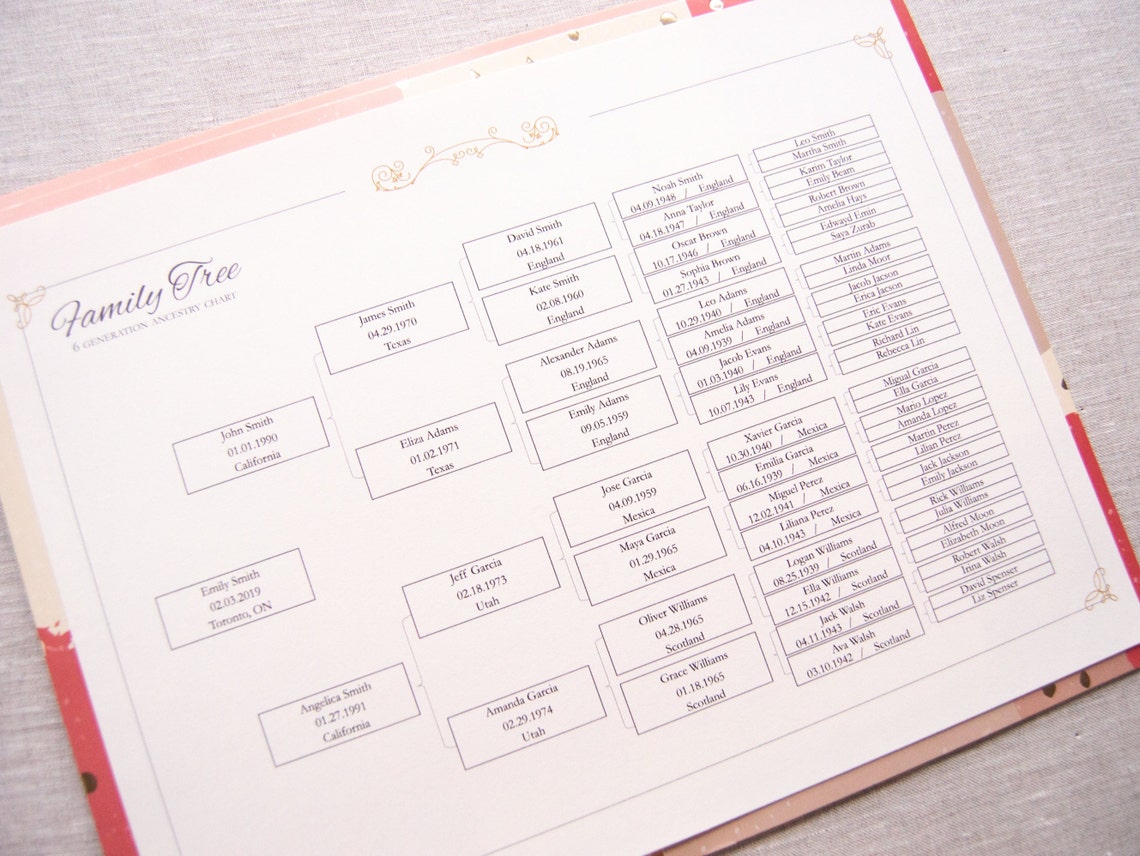 Family Tree
6 GENERATION ANCESTRY CHART
Emily Smith
02.03.2019
Toronto, ON
John Smith
01.01.1990
California
Angelica Smith
01.27.1991
California
James Smith
04.29.1970
Texas
Eliza Adams
01.02.1971
Texas
Jeff Garcia
02.18.1973
Utah
Amanda Garcia
02.29.1974
Utah
David Smith
04.18.1961
England
Kate Smith
02.08.1960
England
Alexander Adams
08.19.1965
England
Emily Adams
09.05.1959
England
Jose Garcia
04.09.1959
Mexica
Maya Garcia
01.29.1965
Mexica
Oliver Williams
04.28.1965
Scotland
Grace Williams
01.18.1965
Scotland
Noah Smith
04.09.1948 / England
Anna Taylor
04.18.1947 / England
Oscar Brown
10.17.1946 / England
Sophia Brown
01.27.1943 / England
Leo Adams
10.29.1940 / England
Amelia Adams
04.09.1939 / England
Jacob Evans
01.03.1940 / England
Lily Evans
10.07.1943 / England
Xavier Garcia
10.30.1940 / Mexica
Emilia Garcia
06.16.1939 / Mexica
Miguel Perez
12.02.1941 / Mexica
Liliana Perez
04.10.1943 / Mexica
Logan Williams
08.25.1939 / Scotland
Ella Williams
12.15.1942 / Scotland
Jack Walsh
04.11.1943 / Scotland
Ava Walsh
03.10.1942 / Scotland
Leo Smith
Martha Smith
Karim Taylor
Emily Beam
Robert Brown
Amelia Hays
Edwayd Emin
Saya Zurab
Martin Adams
Linda Moor
Jacob Jacson
Erica Jacson
Eric Evans
Kate Evans
Richard Lin
Rebecca Lin
Migual Garcia
Ella Garcia
Mario Lopez
Amanda Lopez
Martin Perez
Lilian Perez
Jack Jackson
Emily Jackson
Rick Williams
Julia Williams
Alfred Moon
Elizabeth Moon
Robert Walsh
Irina Walsh
David Spenser
Liz Spenser